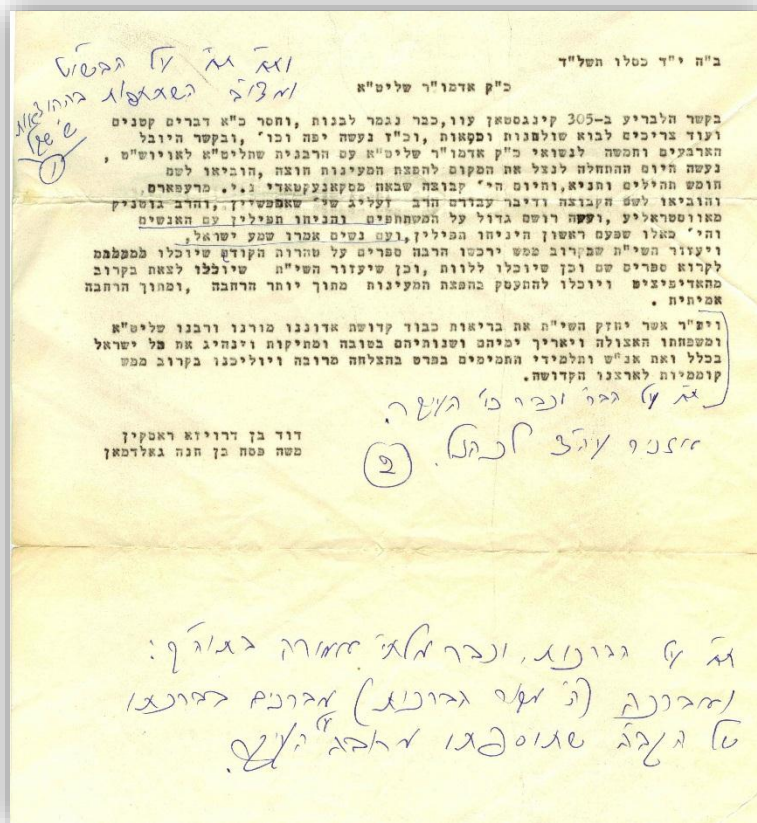 ב"ה י"ד כסלו תשל"ד
ות"ח ת"ח על הבשו"ט
ומצו"ב השתתפות בההוצאות
ש"י שקל
(1)
כ"ק אדמו"ר שליט"א
בקשר הלבריע ב-305 קינגסטאן עוו,כבר נגמר לבנות ,וחסר כ"א דברים קטנים
ועוד צריכים לבוא שולחנות וכסאות ,וכ"ז נעשה יפה וכו' ,ובקשר היובל
הארבעים וחמשה לנשואי כ"ק אדמו"ר שליט"א עם הרבנית שתליט"א לאויוש"ט ,
נעשה היום ההתחלה לנצל את המקום להפצת המעינות חוצה,הוביאו לשם
חומש תהילים ותניא,והיום הי' קבוצה שבאה מסקאנעקטאדי נ.י. מרעפארם
והוביאו לשם הקבוצה ודיבר עבורם הרב זעליג שי' שארפשטיין,והרב גוטניק
מאווסטראליע ,ועשה רושם גדול על המשתתפים והניחו תפילין עם האנשים
והי' כאלו שפעם ראשון היניחו תפילין,ועם נשים אמרו שמע ישראל,
ויעזור השי"ת שבקרוב ממש ירכשו הרבה ספרים על טהרות הקודש שיוכלו
לקרוא ספרים שם וכן שיוכלו ללוות ,וכן שיעזור השי"ת שיוכלו לצאת בקרוב
מהאדיפיציט ויוכלו להתעסק בהפצת המעינות מתוך יותר הרחבה ,ומתוך הרחבה
אמיתית .
ויה"ר אשר יחזק השי"ת את בריאות כבוד קדושת אדוננו מורנו ורבנו שליט"א
ומשפחתו האצולה ויאריך ימיהם ושנותיהם בטובה ומתיקות וינהיג את כל ישראל
בכלל ואת אנ"ש ותלמידי התמימים בפרט בהצלחה מרובה ויוליכנו בקרוב ממש
קוממיות לארצנו הקדושה.
ת"ח על הבר' וכבר כו'
אזכיר עה"צ לכהנ"ל. (2)
דוד בן דרויזא ראסקין
משה פסח בן חנה גאלדמאן
ת"ח על הברכות, וכבר מלתי אמורה בתוה"ק:
ואברכה (ה' מקור הברכות) מברכים בברכתו
של הקב"ה שתוספתו מרובה על העיקר.